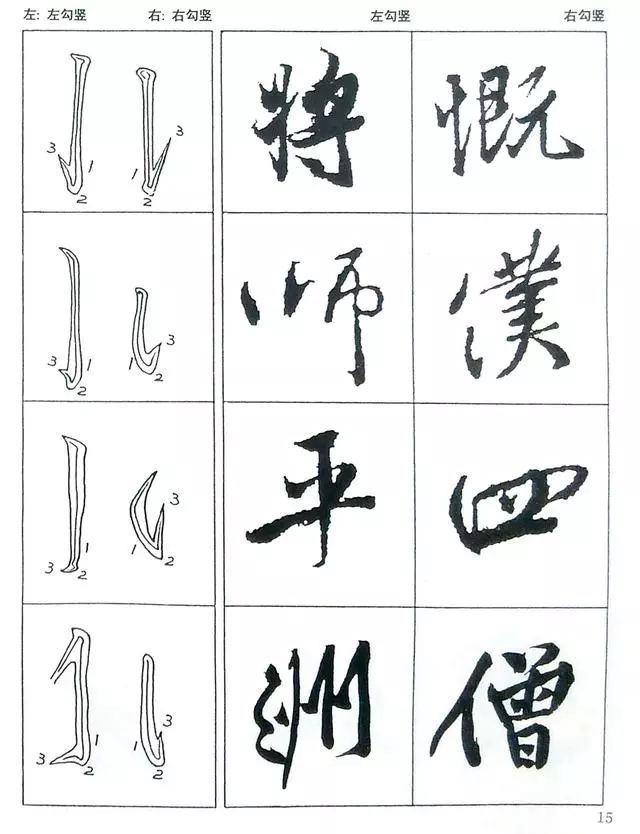 左: 左勾竖 右: 右勾竖 左勾竖 右勾竖
3 1 2 3 1 2 將 慨
3 1 2 3 1 2 师 僕
1 3 2 3 1 2 平 四
1 3 2 3 1 2 洲 僧
15